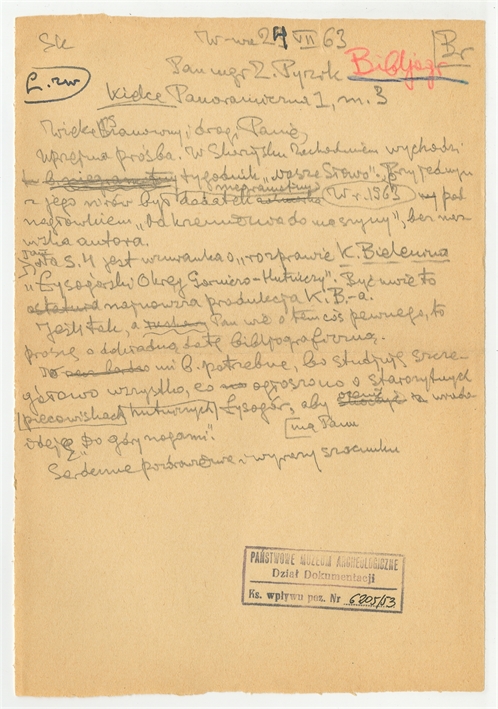 W-wa 24 VII 63
Br
Pan mgr Z. Pyzik
Bibljogr
Kielce Panoramiczna 1, m. 3
Wielce Szanowny i drogi Panie,
Uprzejma prośba. W Skarżysku Zachodniem wychodzi
tygodnik „Nasze Słowo". Przy jednym
nieparzystym
z jego nrów był dodatek W r. 1963 pod
nagłówkiem „Od krzemienia do maszyny", bez naz-
wiska autora.
Na s. 4 jest wzmianka o „rozprawie K. Bielenina
„Łysogórski Okręg Górniczo-Hutniczy". Być może to
najnowsza produkcja K. B-a.
Jeśli tak, a Pan wie o tem coś pewnego, to
proszę o dokładną datę bibljograficzną.
mi b. potrzebne, bo studjuję szcze-
gółowo wszystko, co ogłoszono o starożytnych
piecowiskach hutniczych Łysogór, aby
ideję „do góry nogami".
ma Panu
Serdeczne pozdrowienia i wyrazy szacunku
PAŃSTWOWE MUZEUM ARCHEOLOGICZNE
Dział Dokumentacji
Ks. wpływu poz. Nr 6205/53